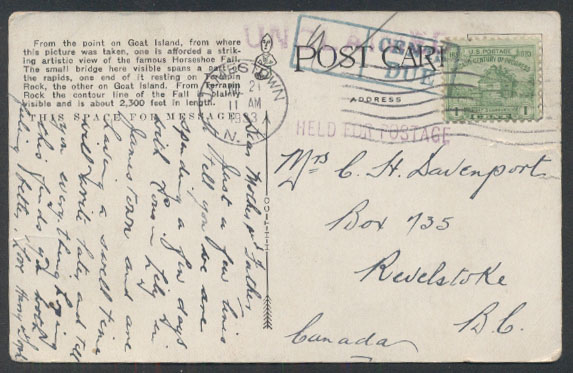 From the point on Goat Island, from where
this picture was taken, one is afforded a strik-
ing artistic view of the famous Horseshoe Fall.
The small bridge here visible spans a part of
the rapids, one end of it resting on Terrapin
Rock, the other on Goat Island. From Terrapin
Rock the contour line of the Fall is plainly
visible and is about 2,300 feet in length.
THIS SPACE FOR MESSAGE
POST CARD
ADDRESS
CENTS
DUE
HELD FOR POSTAGE
U.S. POSTAGE
CENTURY OF PROGRESS
21
11 AM
N.
Mrs C. H. Davenport
Box 735
Revelstoke
B.C.
Canada
Dear Mother and Father
Just a few lines
to tell you we are
spending a few days
with
Jamestown and are
having a swell time
will write later and tell
you everything
this finds you both
feeling better. Love